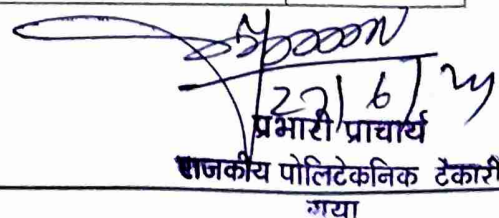 27/6/24
प्रभारी प्राचार्य
राजकीय पोलिटेकनिक टेकारी
गया